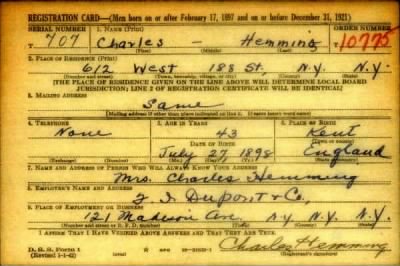 REGISTRATION CARD—(Men born on or after February 17, 1897 and on or before December 31, 1921)
SERIAL NUMBER 1. NAME (Print) ORDER NUMBER
T 707 Charles — Hemming 10775
2. PLACE OF RESIDENCE (Print)
612 West 188 St., N.Y. N.Y.
(Number and street) (Town, township, village, or city) (County) (State)
[THE PLACE OF RESIDENCE GIVEN ON THE LINE ABOVE WILL DETERMINE LOCAL BOARD
JURISDICTION; LINE 2 OF REGISTRATION CERTIFICATE WILL BE IDENTICAL]
3. MAILING ADDRESS
Same
[Mailing address if other than place indicated on line 2. If same insert word same]
4. TELEPHONE 5. AGE IN YEARS 6. PLACE OF BIRTH
None 43 Kent
DATE OF BIRTH (Town or county)
July 27, 1898 England
(Exchange) (Number) (Mo.) (Day) (Yr.) (State or country)
7. NAME AND ADDRESS OF PERSON WHO WILL ALWAYS KNOW YOUR ADDRESS
Mrs. Charles Hemming
8. EMPLOYER'S NAME AND ADDRESS
Dupont & Co.,
9. PLACE OF EMPLOYMENT OR BUSINESS
121 Madison Ave. N.Y. N.Y. N.Y.
(Number and street or R. F. D. number) (Town) (County) (State)
I AFFIRM THAT I HAVE VERIFIED ABOVE ANSWERS AND THAT THEY ARE TRUE.
D. S. S. Form 1
(Revised 1-1-42) Charles Hemming
(Registrant's signature)